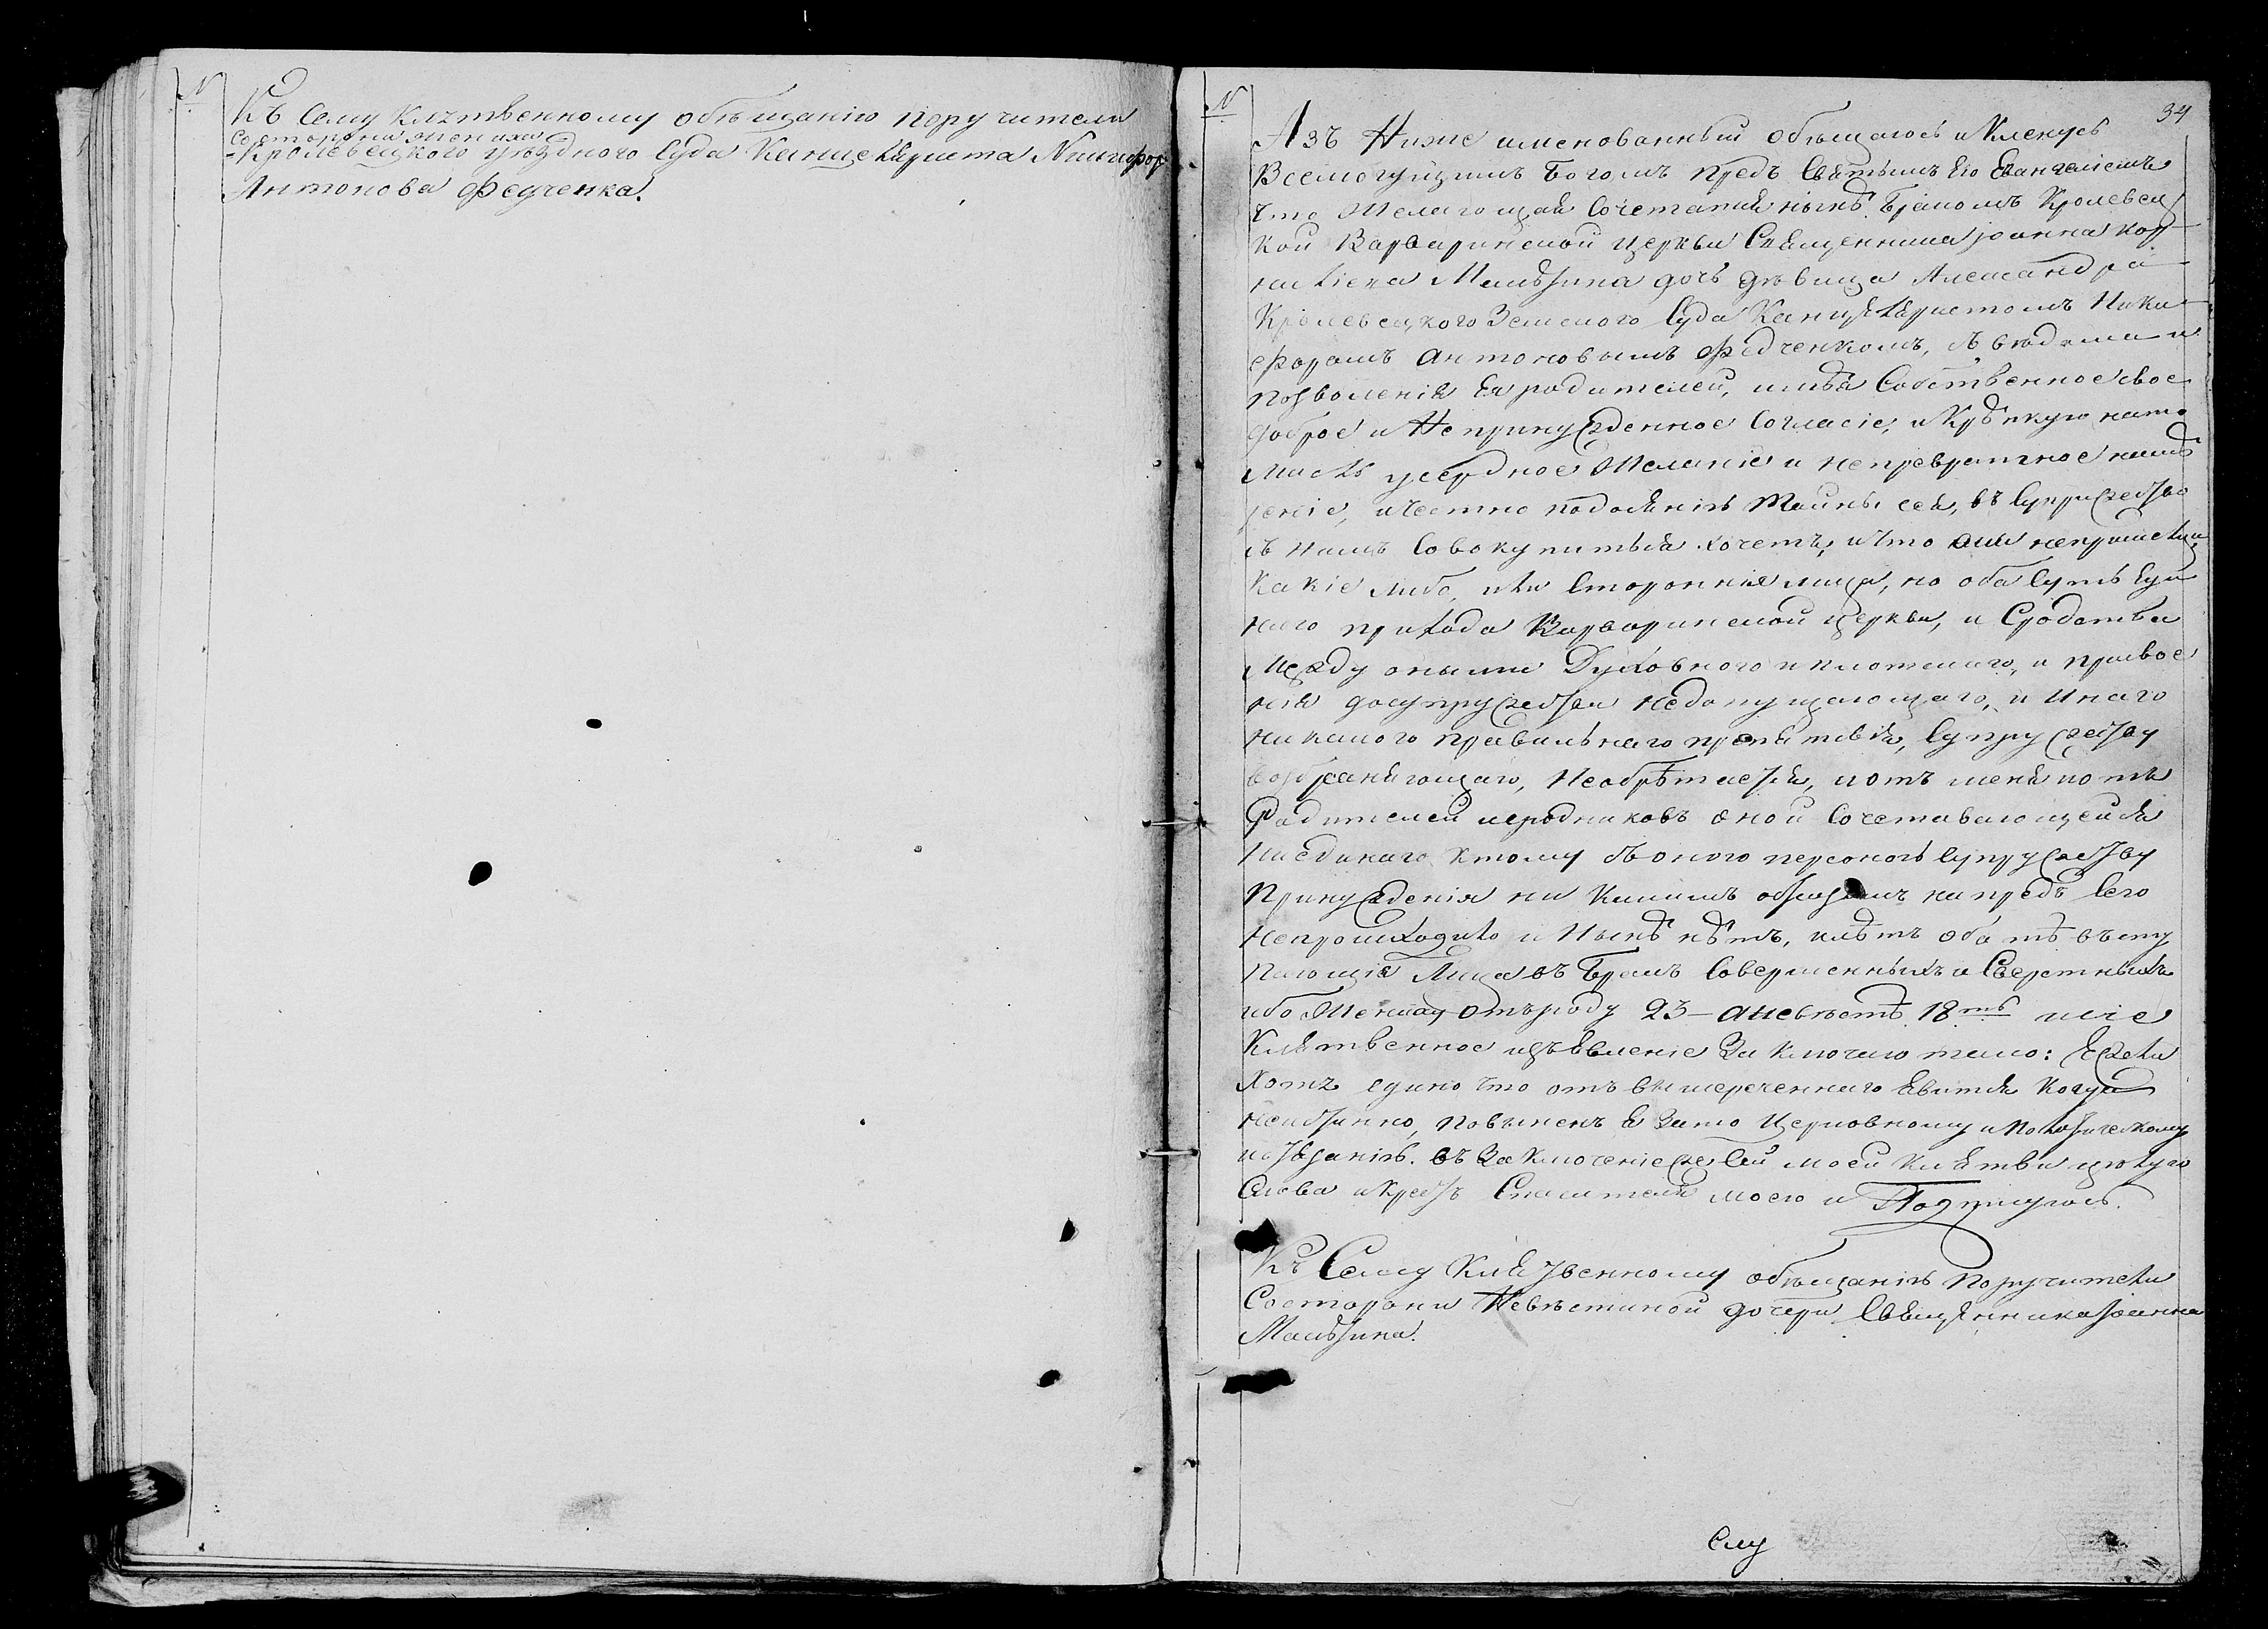 N
Къ Сему клятвенному обѣщанію поручители
Состороны жениха
Кролевецкого уѣздного Суда Канцеляриста Никифор
Антонова Федченка.
N
34
Азъ Ниже именованный обѣщаюсь и Кленусь
Всемогущимъ Богомъ предъ Святымъ Его Евангелиемъ
что Желающая Сочетатися нынѣ Бракомъ Кролевец
кой Варваринской церкви Священника Iоанна Кор
нилиева Мальзина дочь дѣвица Александра
Кролевецкого Земского Суда Канцеляристомъ Ники
форомъ Антоновымъ Федченкомъ, съ вѣдома и
позволенія Ея родителей, имѣя Собственное свое
доброе и Непринужденное Согласіе, и Крѣпкую на то
мысль усердное Желаніе и непревратное намѣ
реніе, и честно подобенію тайны сея, въ Супружество
съ нимъ Совокупитися хочетъ, и что они непришелцы
Какіе либо, или Сторонние лица, но оба Суть Еди
наго прихода Варваринской церкви, и Сродства
Между оными Духовного и плотского, и присвое
ния до супружества недопущающаго, и Инаго
никакого правильнаго препятствія, Супружеству
возбраняющаго, Необрѣтается, и отъ меня и отъ
Родителей и сродниковъ оной Сочетавающейся
Ни единаго к тому съ оного персоною Супружеству
Принужденія ни Какимъ образомъ на предъ Сего
Непроисходило и Нынѣ нѣтъ, и лѣтъ оба тѣ въсту
пающія Лица въ Бракъ Совершенныхъ и Сверстныхъ
ибо Жениху отъ роду 23 - а невѣстѣ 18ть и сіе
Клятвенное изъявленіе Заключаю тако: Ежели
Хотя едино что отъ вышереченнаго Явится Когда
Неистинно, повиненъ Я Зато Церковному и Политическому
истязанію. въ Заключеніе же Сей моей Клятви цѣлую
Слова и Крестъ Спасителя моего и Подпишусь.
Къ Сему Клятвенному обѣщанію Поручители
Состороны Невѣстиной дочери Священника Iоанна
Мальзина.
Слу